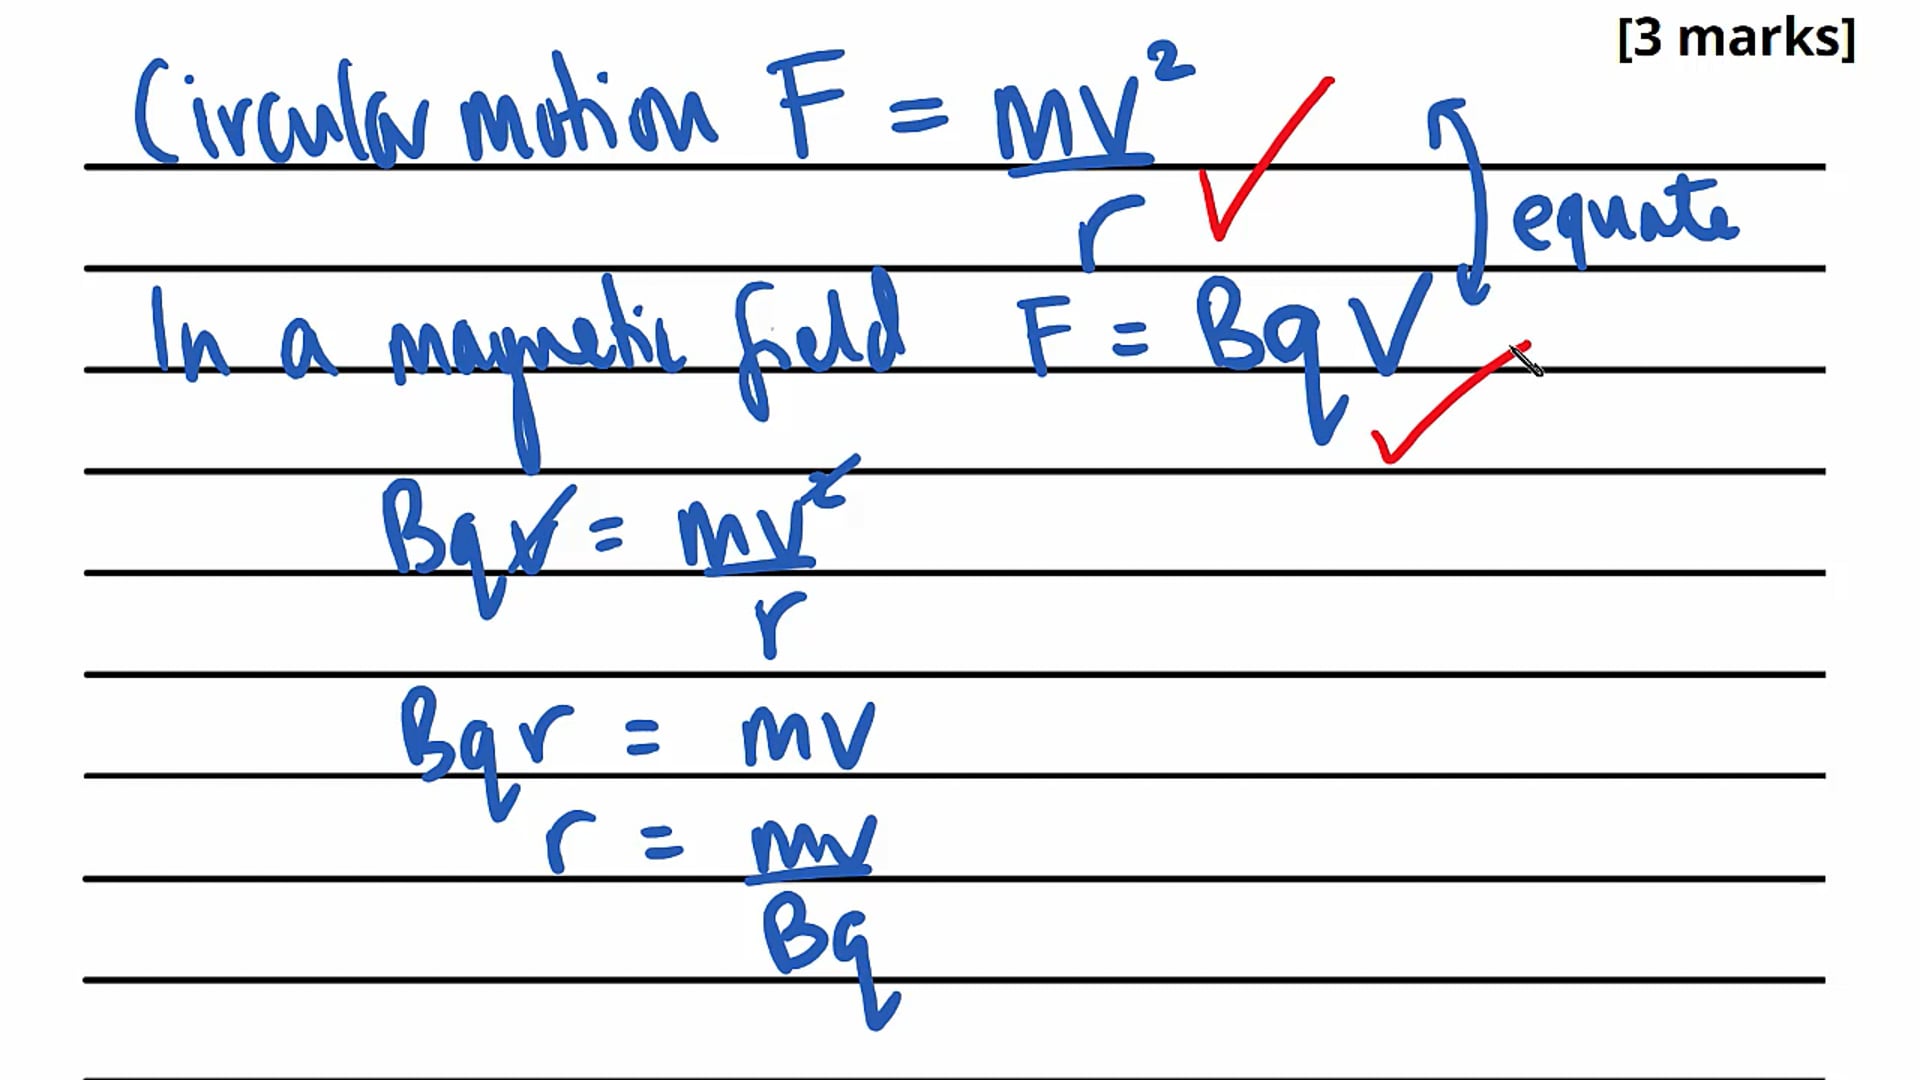 [3 marks]
Circular motion F = mv²/r
equate
In a magnetic field F = BqV
Bqv = mv²/r
Bqr = mv
r = mv/Bq